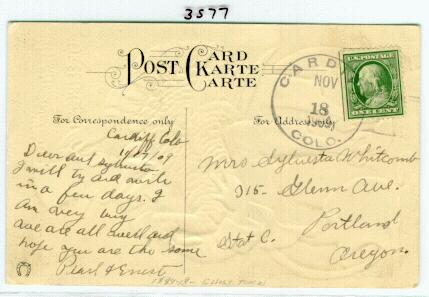 3577
POST CARD
KARTE
CARTE
CARDIFF
NOV
18
1909
COLO.
U.S. POSTAGE
ONE CENT
For Correspondence only
For Address only
Cardiff Colo
11/17/09
Dear aunt Sylvesta
I will try and write
in a few days. I
am very busy
we are all well and
hope you are the same
Pearl & Ernest
Mrs Sylvesta Whitcomb
915- Glenn Ave.
Portland
Stat C.
Oregon.
GHOST TOWN